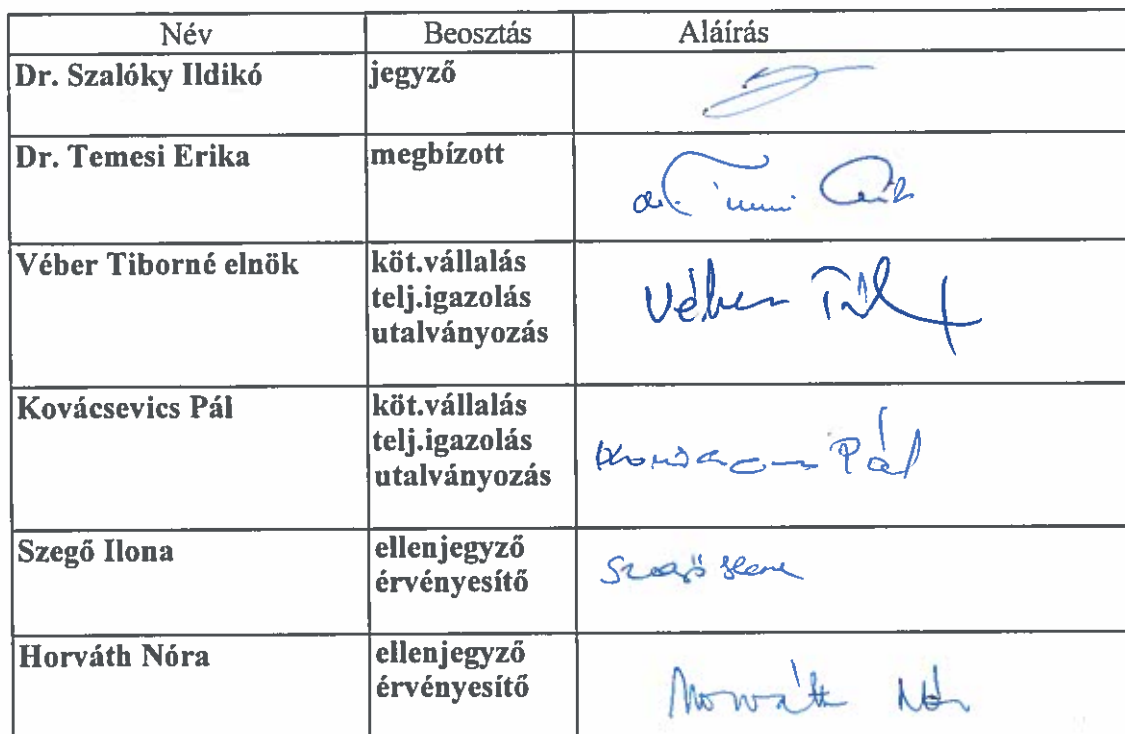 Név Beosztás Aláírás
Dr. Szalóky Ildikó jegyző
Dr. Temesi Erika megbízott
Véber Tiborné elnök köt.vállalás Véber
telj.igazolás
utalványozás
Kovácsevics Pál köt.vállalás
telj.igazolás Pál
utalványozás
Szegő Ilona ellenjegyző
érvényesítő Szegő Ilona
Horváth Nóra ellenjegyző
érvényesítő Horváth Nóra